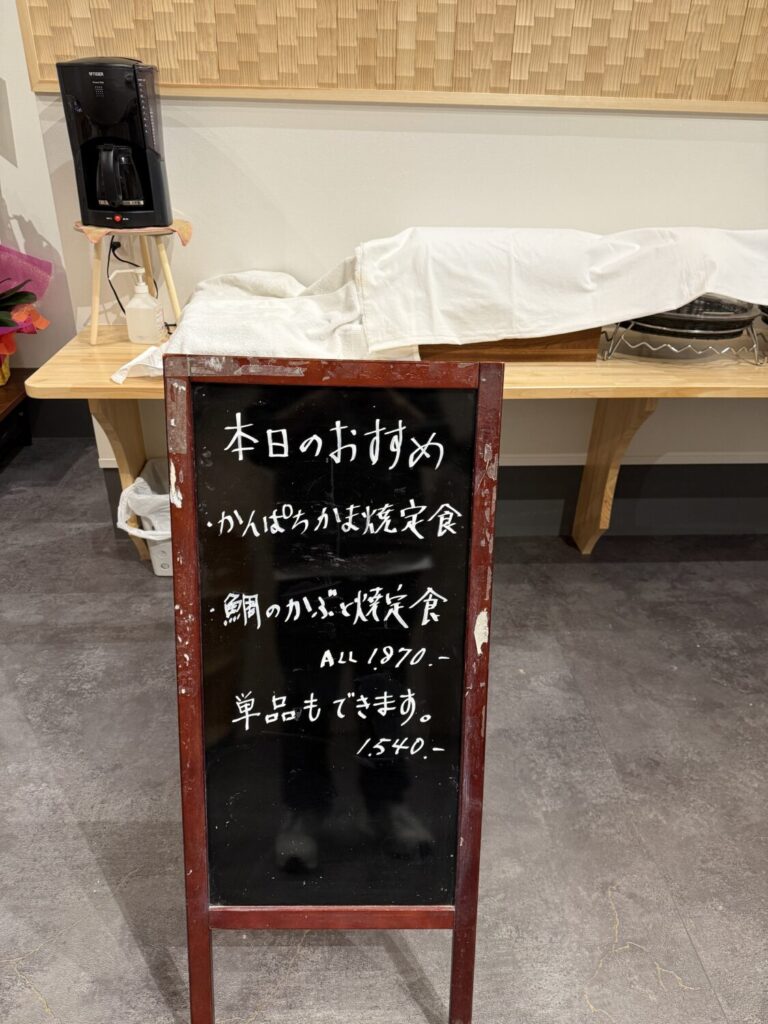 本日のおすすめ
・かんぱちかま焼定食
・鯛のかぶと焼定食
ALL 1.870.-
単品もできます。
1.540.-